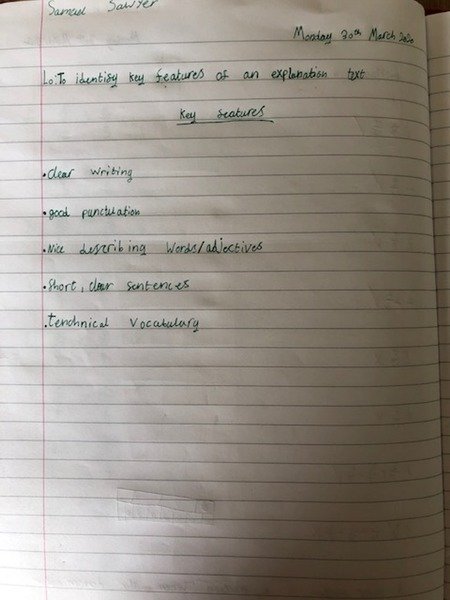 Samuel Sawyer
Monday 30th March 2020
Lo: To identify key features of an explanation text
Key features
•clear writing
•good punctulation
•Nice describing Words/adjectives
•Short, clear sentences
•tenchnical vocabulary